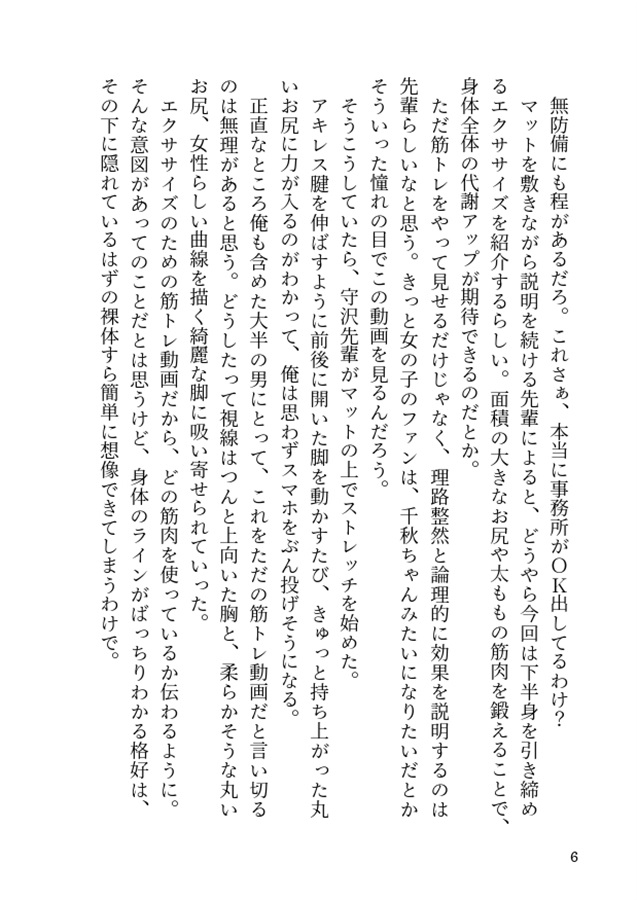 無防備にも程があるだろ。これさぁ、本当に事務所がＯＫ出してるわけ？
マットを敷きながら説明を続ける先輩によると、どうやら今回は下半身を引き締め
るエクササイズを紹介するらしい。面積の大きなお尻や太ももの筋肉を鍛えることで、
身体全体の代謝アップが期待できるのだとか。
ただ筋トレをやって見せるだけじゃなく、理路整然と論理的に効果を説明するのは
先輩らしいなと思う。きっと女の子のファンは、千秋ちゃんみたいになりたいだとか
そういった憧れの目でこの動画を見るんだろう。
そうこうしていたら、守沢先輩がマットの上でストレッチを始めた。
アキレス腱を伸ばすように前後に開いた脚を動かすたび、きゅっと持ち上がった丸
いお尻に力が入るのがわかって、俺は思わずスマホをぶん投げそうになる。
正直なところ俺も含めた大半の男にとって、これをただの筋トレ動画だと言い切る
のは無理があると思う。どうしたって視線はつんと上向いた胸と、柔らかそうな丸い
お尻、女性らしい曲線を描く綺麗な脚に吸い寄せられていった。
エクササイズのための筋トレ動画だから、どの筋肉を使っているか伝わるように。
そんな意図があってのことだとは思うけど、身体のラインがばっちりわかる格好は、
その下に隠れているはずの裸体すら簡単に想像できてしまうわけで。
6